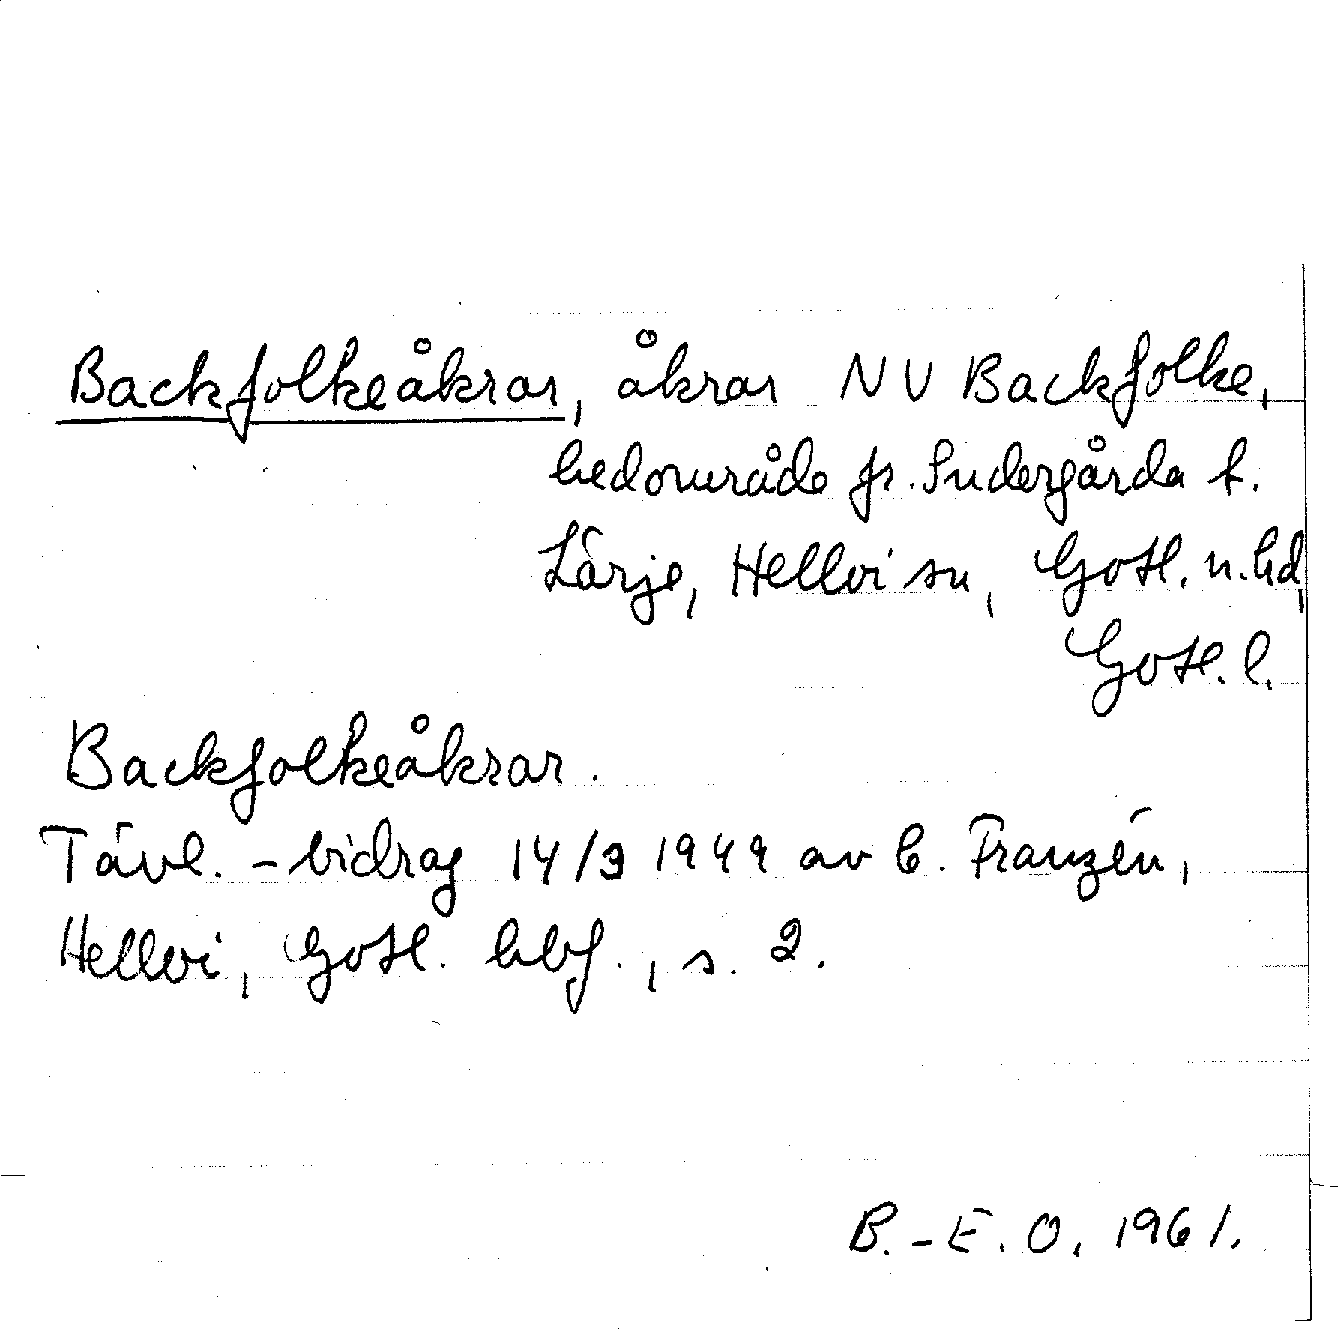 Backfolkeåkrar, åkrar NV Backfolke,
hedområde fr. Sudergårda t.
Lärje, Hellvi sn, Gotl. n. hd,
Gotl. l.
Backfolkeåkrar.
Tävl. - bidrag 14/3 1949 av C. Franzén,
Hellvi, Gotl. hbf., s. 2.
B.-E. O. 1961.